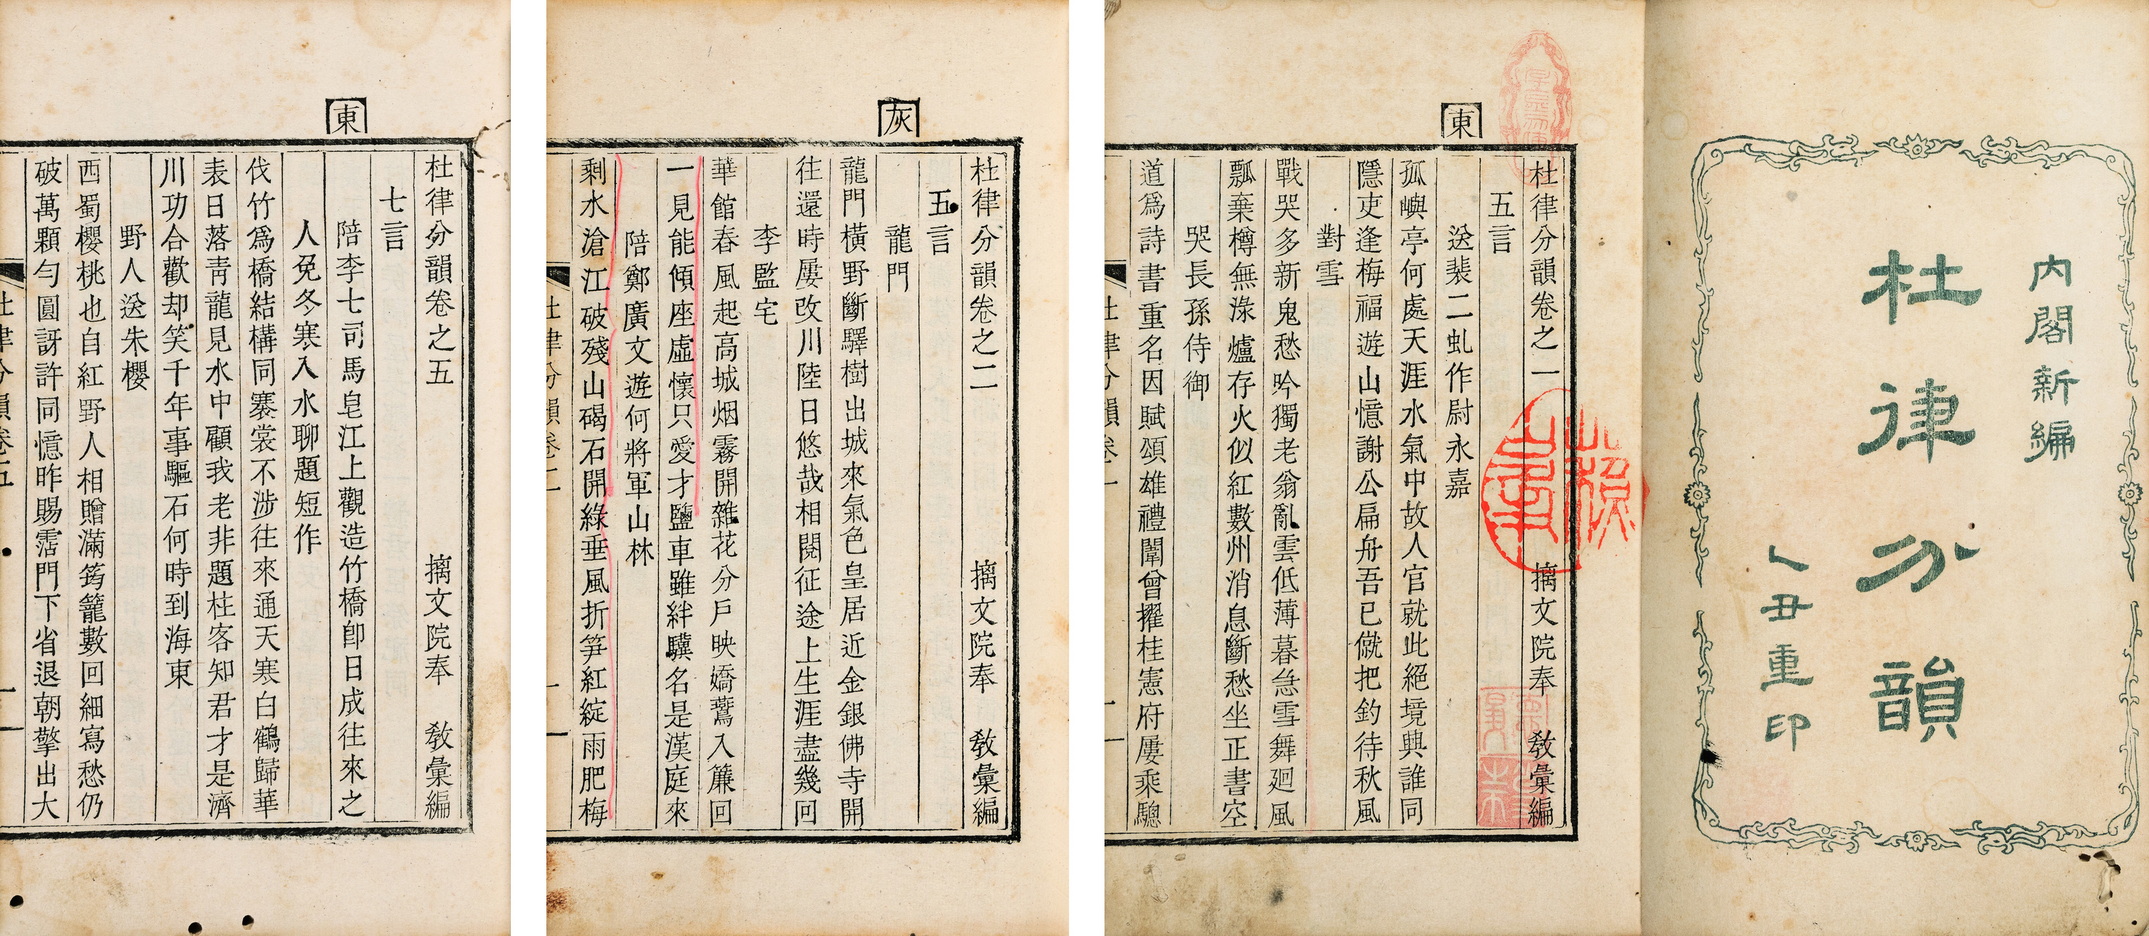 內閣新編
杜律分韻
乙丑重印
東
杜律分韻卷之一 摛文院奉 敎彙編
五言
送裴二虬作尉永嘉
孤嶼亭何處天涯水氣中故人官就此絕境興誰同
隱吏逢梅福遊山憶謝公扁舟吾已僦把釣待秋風
對雪
戰哭多新鬼愁吟獨老翁亂雲低薄暮急雪舞廻風
瓢棄樽無淥爐存火似紅數州消息斷愁坐正書空
哭長孫侍御
道爲詩書重名因賦頌雄禮闈曾擢桂憲府屢乘驄
灰
杜律分韻卷之二 摛文院奉 敎彙編
五言
龍門
龍門橫野斷驛樹出城來氣色皇居近金銀佛寺開
往還時屢改川陸日悠哉相閱征途上生涯盡幾回
李監宅
華館春風起高城烟霧開雜花分戶映嬌鷰入簾回
一見能傾座虛懷只愛才鹽車雖絆驥名是漢庭來
陪鄭廣文遊何將軍山林
剩水滄江破殘山碣石開綠垂風折笋紅綻雨肥梅
東
杜律分韻卷之五 摛文院奉 敎彙編
七言
陪李七司馬皂江上觀造竹橋卽日成往來之
人免冬寒入水聊題短作
伐竹爲橋結構同褰裳不涉往來通天寒白鶴歸華
表日落靑龍見水中顧我老非題柱客知君才是濟
川功合歡却笑千年事驅石何時到海東
野人送朱櫻
西蜀櫻桃也自紅野人相贈滿筠籠數回細寫愁仍
破萬顆勻圓訝許同憶昨賜霑門下省退朝擎出大